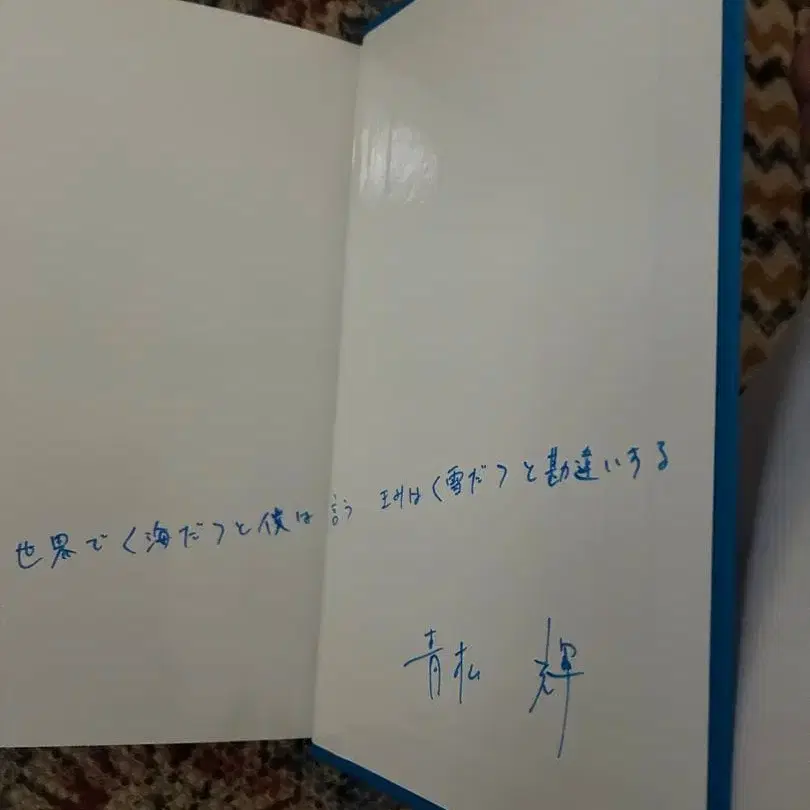 世界で〈海だ〉と僕は言う きみは〈雪だ〉と勘違いする
青松 輝